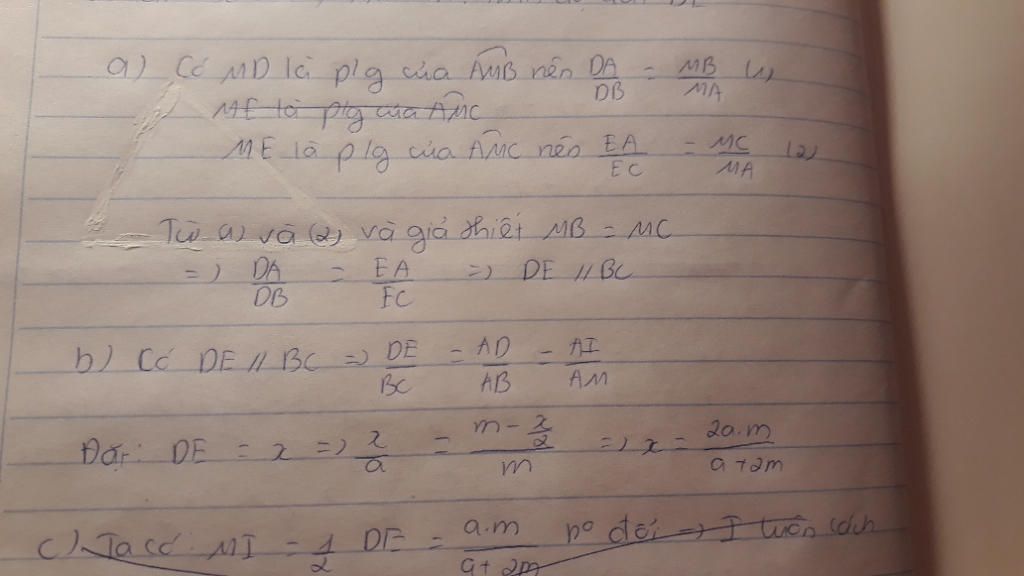 a) Có MD là p/g của AMB nên DA/DB = MB/MA (1)
ME là p/g của AMC
ME là p/g của AMC nên EA/EC = MC/MA (2)
Từ (1) và (2) và giả thiết MB = MC
=> DA/DB = EA/EC => DE // BC
b) Có DE // BC => DE/BC = AD/AB = AI/AM
Đặt: DE = x => x/a = (m - x/2)/m => x = 2a.m/(a+2m)
c) Ta có: MI = 1/2 DE = a.m/(a+2m) không đổi => I luôn cách